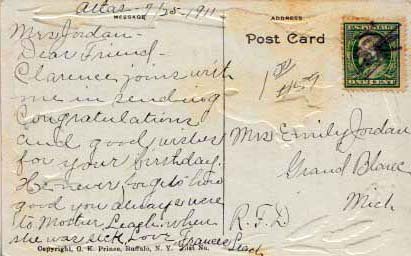 Atlas - 9/25-1911
MESSAGE
Mrs Jordan -
Dear Friend -
Clarence joins with
me in sending
Congratulations
and good wishes
for your birthday.
He never forgets how
good you always were
to Mother Leach when
she was sick, Love Frances
Leach
Copyright, G. K. Prince, Buffalo, N. Y. No.
ADDRESS
Post Card
Mrs Emily Jordan
Grand Blanc
Mich
R.F.D